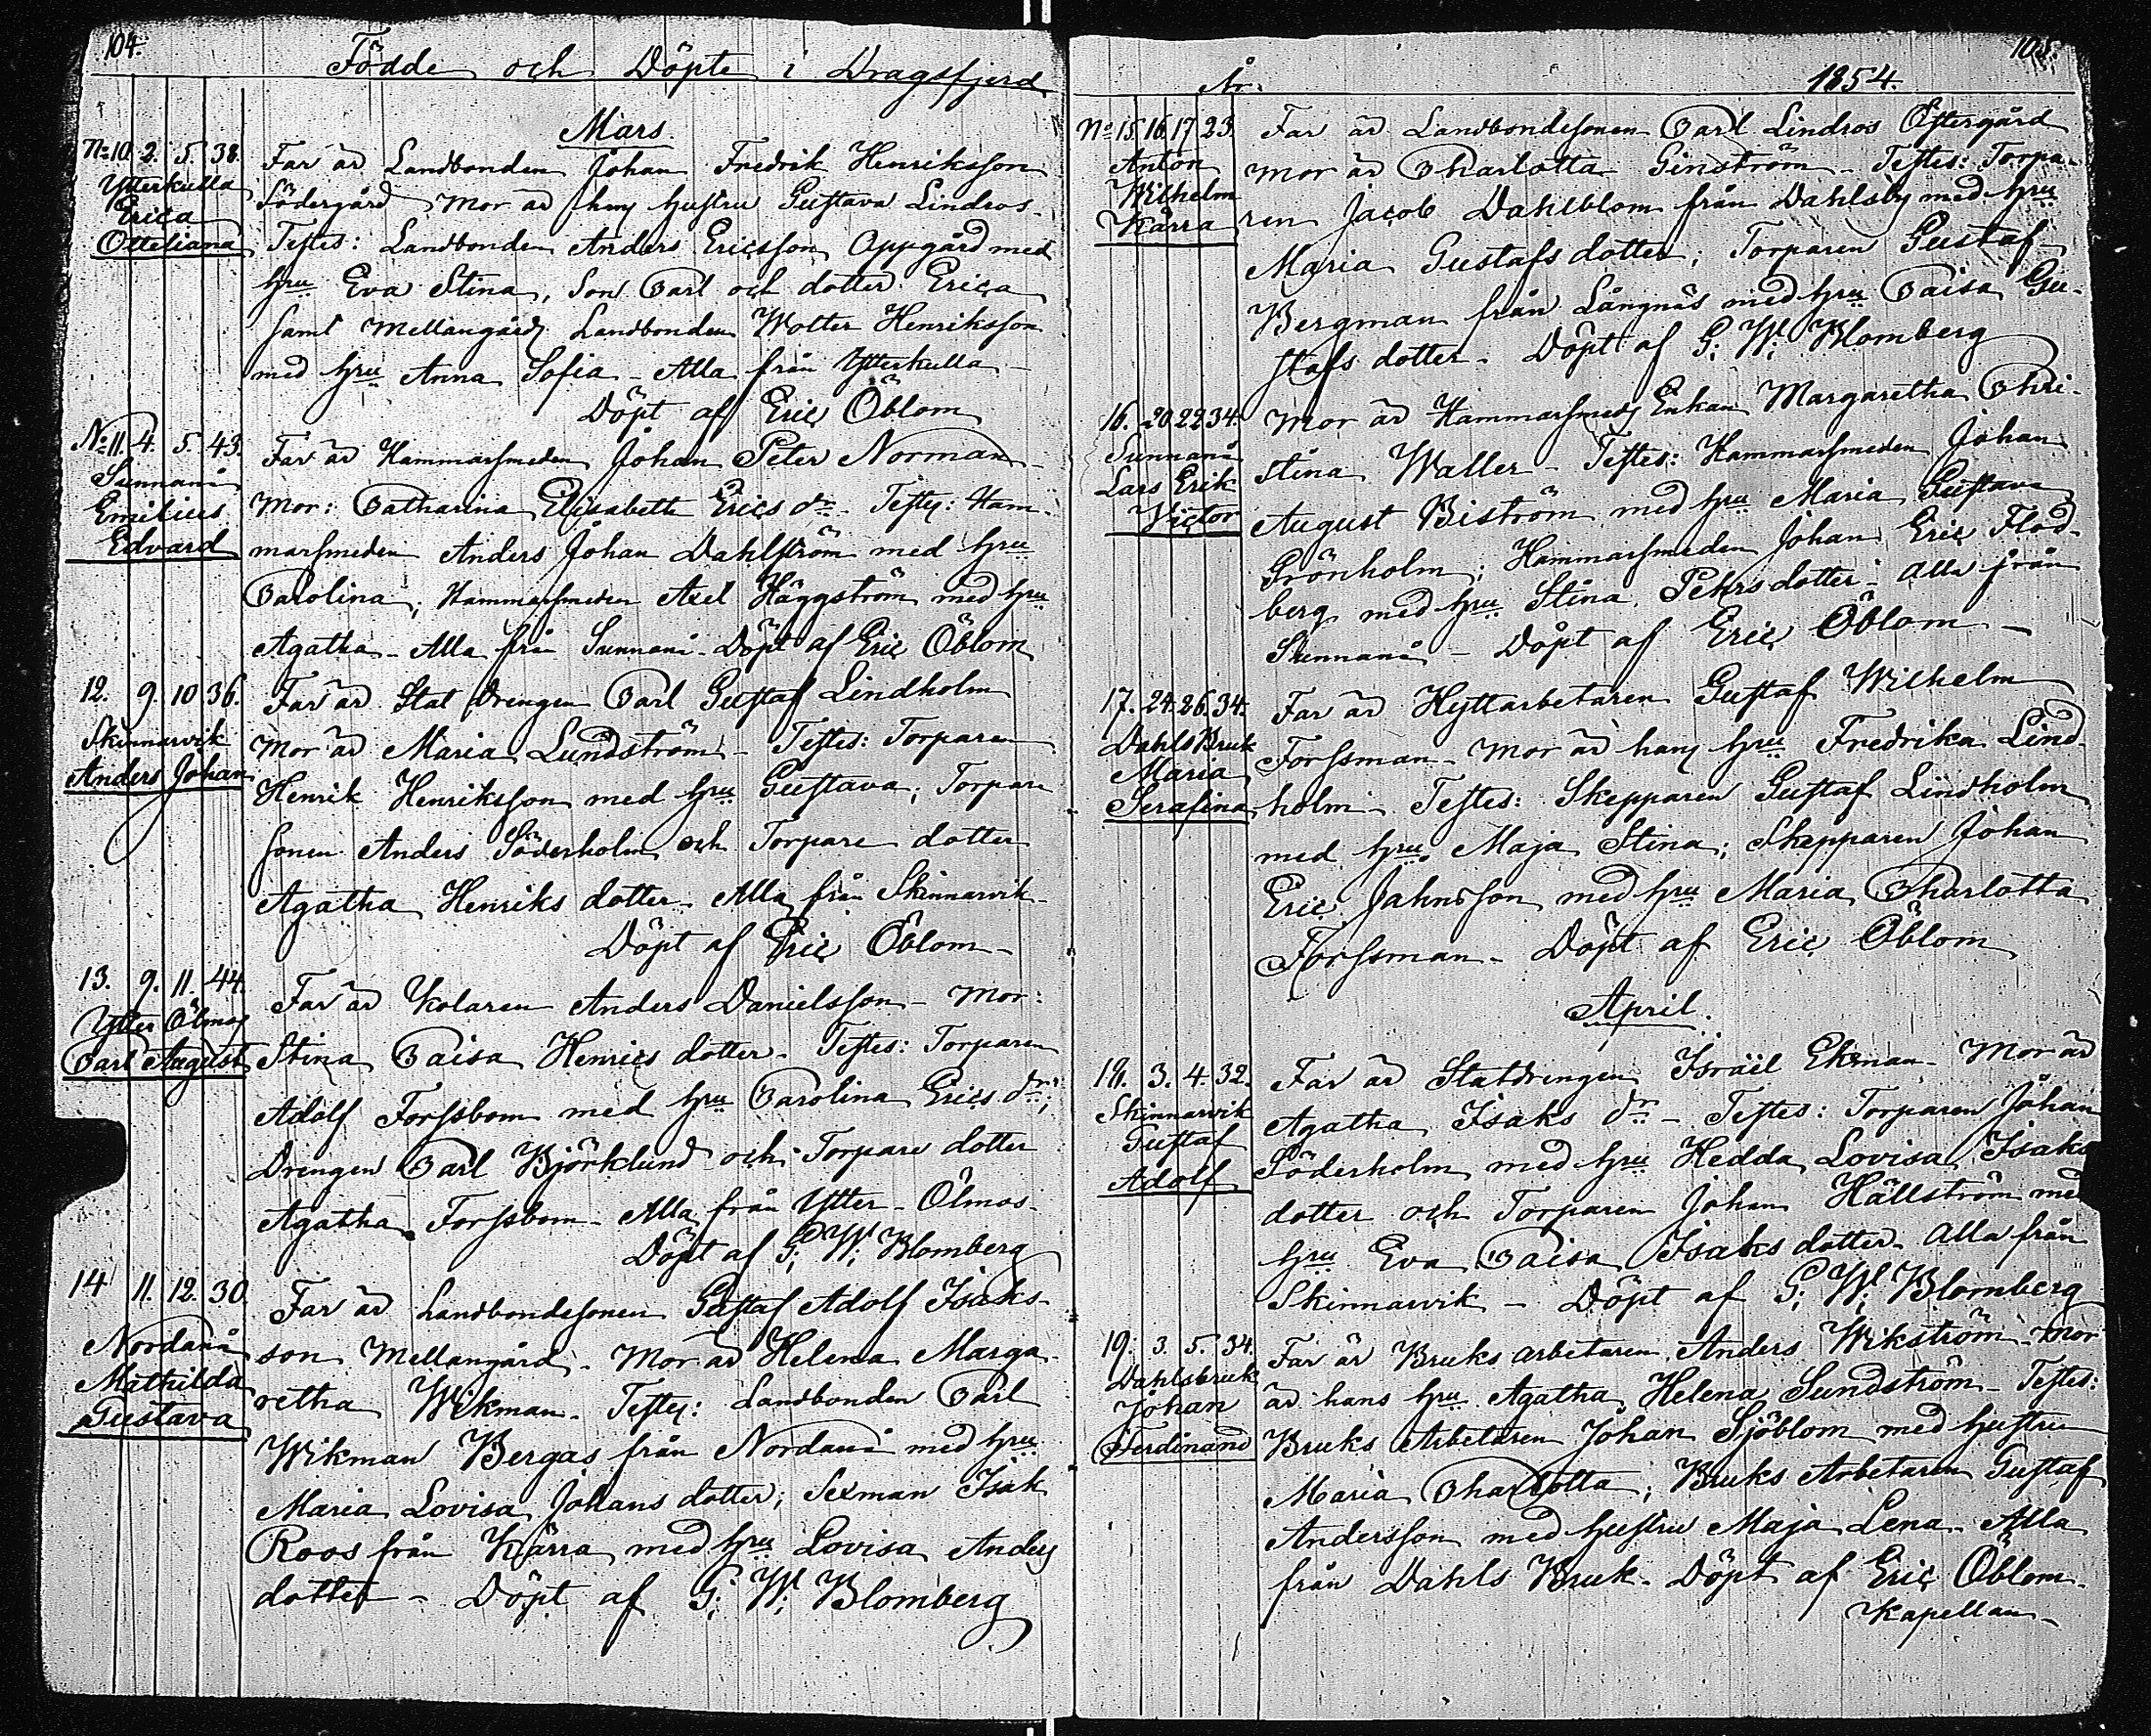 104.
Födde och Döpte i Dragsfjerd
Mars.
No 10. 2. 5. 38.
Ytterkulla
Erica
Otteliana
Far är Landbonden Johan Fredrik Henriksson
Södergård Mor är hans hustru Gustava Lindros-
Testes: Landbonden Anders Ericsson Oppgård med
hru Eva Stina, Son Carl och dotter Erica
samt Mellangårds Landbonden Wolter Henriksson
med hru Anna Sofia - Alla från Ytterkulla -
Döpt af Eric Öblom
No 11. 4. 5. 43.
Sunnanå
Emilius
Edvard
Far är Hammarsmeden Johan Peter Norman -
Mor: Catharina Elisabeth Erics dr - Testes: Ham-
marsmeden Anders Johan Dahlström med hru
Carolina; Hammarsmeden Axel Häggström med hru
Agatha - Alla från Sunnanå - Döpt af Eric Öblom
12. 9. 10 36.
Skinnarvik
Anders Johan
Far är Stat Drengen Carl Gustaf Lindholm
Mor är Maria Lundström - Testes: Torparen
Henrik Henriksson med hru Gustava; Torpare
sonen Anders Söderholm och Torpare dotter
Agatha Henriks dotter - Alla från Skinnarvik -
Döpt af Eric Öblom -
13. 9. 11. 44.
Ytter Ölmos
Carl August
Far är Kolaren Anders Danielsson - Mor:
Stina Caisa Henrics dotter - Testes: Torparen
Adolf Forssbom med hru Carolina Erics dr;
Drengen Carl Björklund och Torpare dotter
Agatha Forssbom - Alla från Ytter-Ölmos -
Döpt af G: W: Blomberg
14 11. 12. 30.
Nordanå
Mathilda
Gustava
Far är Landbondesonen Gustaf Adolf Isaks-
son Mellangård - Mor är Helena Marga-
retha Wikman - Testes: Landbonden Carl
Wikman Bergas från Nordanå med hru
Maria Lovisa Johans dotter; Sexman Isak
Roos från Kärra med hru Lovisa Anders
dotter - Döpt af G: W: Blomberg
105.
År 1854.
No 15. 16. 17. 23.
Anton
Wilhelm
Kärra
Far är Landbondesonen Carl Lindros Östergård
Mor är Charlotta Ginström - Testes: Torpa-
ren Jacob Dahlblom från Dahlsby med hru
Maria Gustafs dotter; Torparen Gustaf
Bergman från Långnäs med hru Caisa Gu-
stafs dotter - Döpt af G: W: Blomberg
16. 20. 22 34.
Sunnanå
Lars Erik
Victor
Mor är Hammarsmeds Enkan Margaretha Chri-
stina Waller - Testes: Hammarsmeden Johan
August Biström med hru Maria Gustava
Grönholm; Hammarsmeden Johan Eric Flod-
berg med hru Stina Pehrs dotter - Alla från
Sunnanå - Döpt af Eric Öblom -
17. 24. 26. 34.
Dahls Bruk
Maria
Serafina
Far är Hyttarbetaren Gustaf Wilhelm
Forssman - Mor är hans hru Fredrika Lind-
holm - Testes: Skepparen Gustaf Lindholm
med hru Maja Stina; Skepparen Johan
Eric Jahnsson med hru Maria Charlotta
Forssman - Döpt af Eric Öblom
April.
18. 3. 4. 32.
Skinnarvik
Gustaf
Adolf
Far är Statdrengen Israël Ekman - Mor är
Agatha Isaks dr - Testes: Torparen Johan
Söderholm med hru Hedda Lovisa Isaks
dotter och Torparen Johan Hällström med
hru Eva Caisa Isaks dotter. Alla från
Skinnarvik - Döpt af G: W: Blomberg
19. 3. 5. 34.
Dahlsbruk
Johan
Ferdinand
Far är Bruks arbetaren Anders Wikström - Mor
är hans hru Agatha Helena Sundström - Testes:
Bruks Arbetaren Johan Sjöblom med hustru
Maria Charlotta; Bruks Arbetaren Gustaf
Andersson med hustru Maja Lena - Alla
från Dahls Bruk - Döpt af Eric Öblom -
Kapellan -